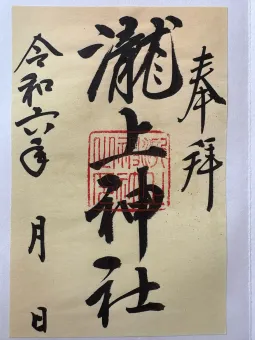 奉拝
瀧上神社
令和六年 月 日